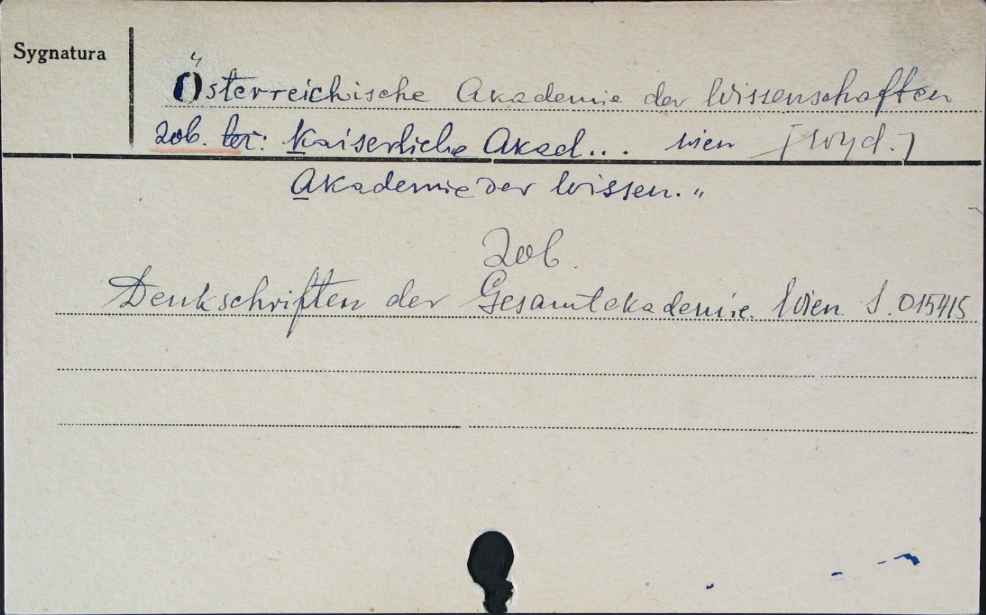 Sygnatura
Österreichische Akademie der Wissenschaften
zob. też: Kaiserliche Akad... Wien [wyd.]
Akademie der Wissen.„
Zob.
Denkschriften der Gesamtakademie Wien S. 015415